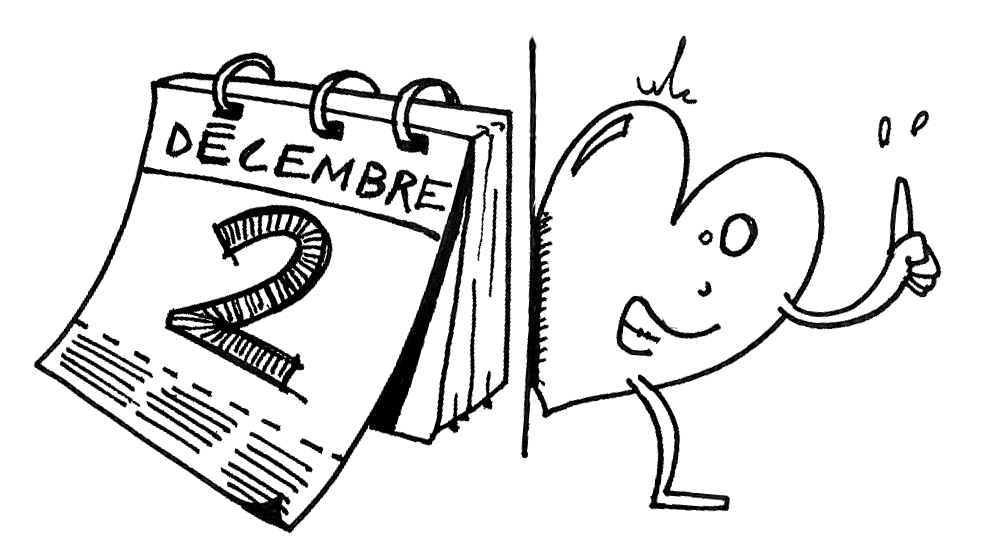 DÉCEMBRE
2